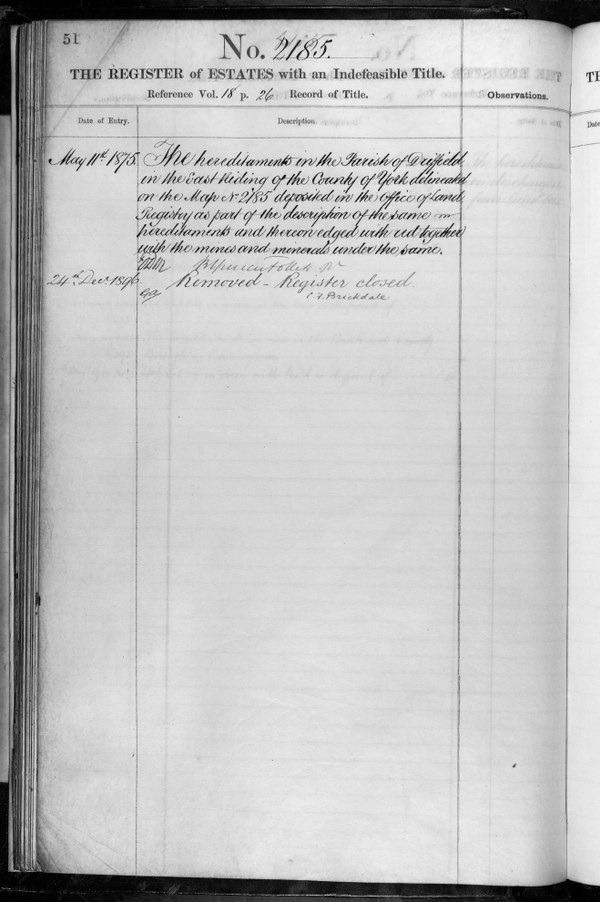 51
No. 2185.
THE REGISTER of ESTATES with an Indefeasible Title.
Reference Vol. 18 p. 26 Record of Title.
Observations.
Date of Entry.
Description.
May 11th 1875.
The hereditaments in the Parish of Driffield
in the East Riding of the County of York delineated
on the Map No 2185 deposited in the Office of Land
Registry as part of the description of the same
hereditaments and thereon edged with red together
with the mines and minerals under the same.
24th Decr 1896.
Removed - Register closed.
C. F. Brickdale
TH
Date